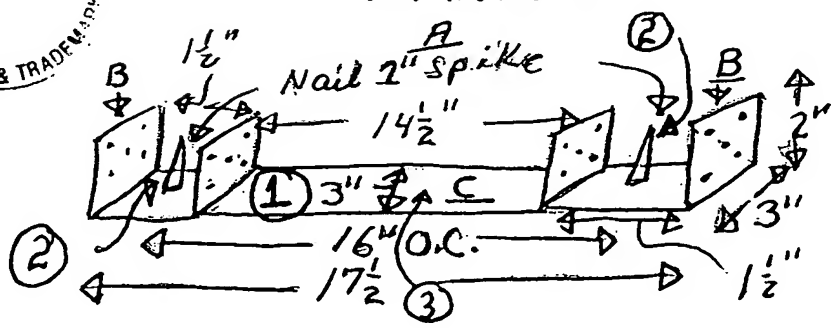 & TRADEMARK
1½"
A
②
B
Nail 2" Spike
B
14½"
2"
① 3" C
3"
② 16" O.C.
1½"
17½
③